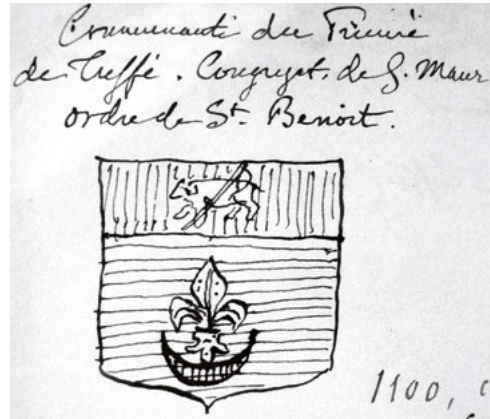 Communauté du Prieuré
de Tuffé. Congrégat. de S. Maur
ordre de St. Benoit.
1100,